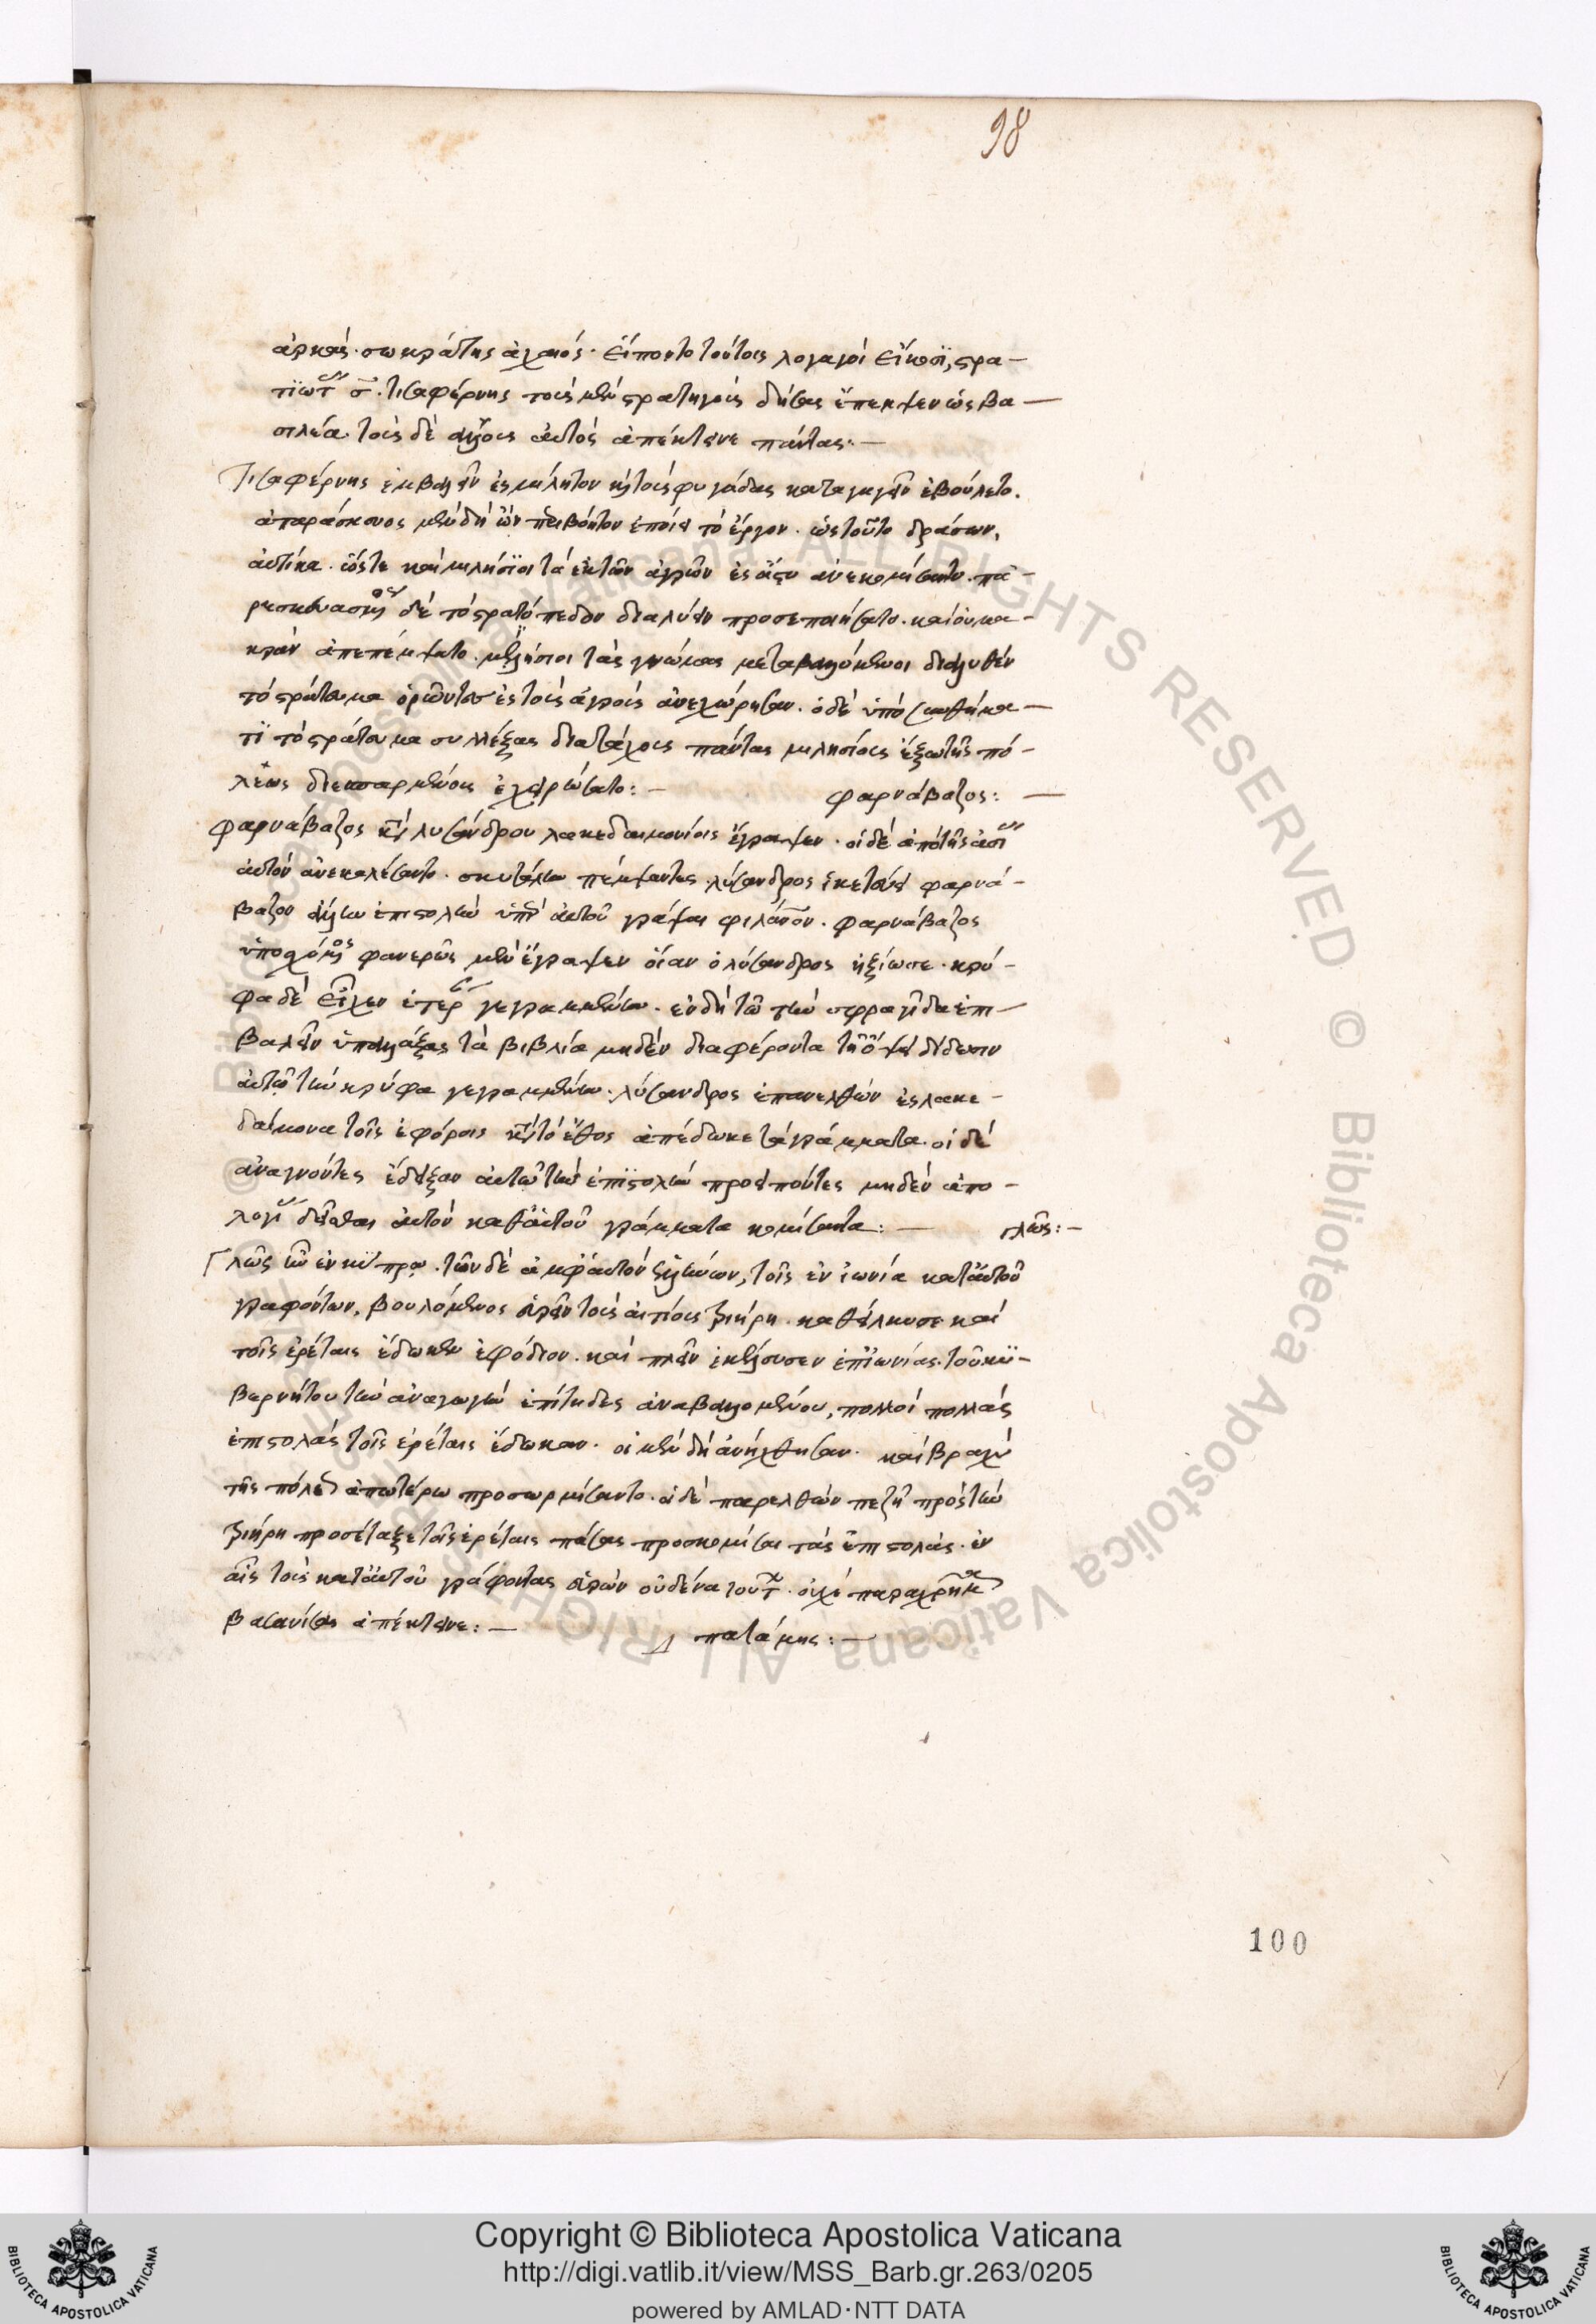 98
ἀρκάς· σωκράτης ἀχαιός· εἵποντο τούτοις λοχαγοὶ εἴκοσι, στρα-
τιῶται σ̅. τισαφέρνης τοὺς μὲν στρατηγοὺς δήσας ἔπεμψεν ὡς βα-
σιλέα. τοὺς δὲ ἄλλους αὐτὸς ἀπέκτεινε πάντας:-
Τισαφέρνης ἐμβαλεῖν ἐς μίλητον καὶ τοὺς φυγάδας καταγαγεῖν ἐβούλετο.
ἀπαράσκευος μὲν δὴ ὢν περιβόητον ἐποίει τὸ ἔργον. ὡς τοῦτο δράσων,
αὐτίκα. ὥστε καὶ μιλήσιοι τὰ ἐκ τῶν ἀγρῶν ἐς ἄστυ ἀνεκομίσαντο. πα-
ρεσκευασμένος δὲ τὸ στρατόπεδον διαλύειν προσεποιήσατο. καὶ οὐ μα-
κρὰν ἀπεπέμψατο. μιλήσιοι τὰς γνώμας μεταβαλόμενοι διαλυθὲν
τὸ στράτευμα ὁρῶντες ἐς τοὺς ἀγροὺς ἀνεχώρησαν. ὁ δὲ ὑπὸ συνθήμα-
τι τὸ στράτευμα συλλέξας διὰ τάχους πάντας μιλησίους ἔξω τῆς πό-
λεως διεσπαρμένους ἐχειρώσατο:-
φαρνάβαζος:-
Φαρνάβαζος κατὰ λυσάνδρου λακεδαιμονίοις ἔγραψεν. οἱ δὲ ἀπὸ τῆς ἀσίας
αὐτὸν ἀνεκαλέσαντο. σκυτάλην πέμψαντες. λύσανδρος ἱκετεύει φαρνά-
βαζον ἄλλην ἐπιστολὴν ὑπὲρ αὐτοῦ γράψαι φιλάνθρωπον. φαρνάβαζος
ὑποσχόμενος φανερῶς μὲν ἔγραψεν οἵαν ὁ λύσανδρος ἠξίωσε. κρύ-
φα δὲ εἶχεν ἑτέραν γεγραμμένην. ἐν δὴ τῷ τὴν σφραγῖδα ἐπι-
βαλεῖν ὑπαλλάξας τὰ βιβλία μηδὲν διαφέροντα τῇ ὄψει δίδωσιν
αὐτῷ τὴν κρύφα γεγραμμένην. λύσανδρος ἐπανελθὼν ἐς λακε-
δαίμονα τοῖς ἐφόροις κατὰ τὸ ἔθος ἀπέδωκε τὰ γράμματα. οἱ δὲ
ἀναγνόντες ἔδειξαν αὐτῷ τὴν ἐπιστολὴν προσειπόντες μηδὲν ἀπο-
λογίας δεῖσθαι αὐτὸν καθ' αὑτοῦ γράμματα κομίσαντα:-
γλῶς:-
Γλῶς ἦν ἐν κύπρῳ. τῶν δὲ ἀμφ' αὐτὸν ἑλλήνων, τοῖς ἐν ἰωνία κατ' αὐτοῦ
γραφόντων, βουλόμενος εὑρεῖν τοὺς αἰτίους τριήρη. καθείλκυσε καὶ
τοῖς ἐρέταις ἔδωκεν ἐφόδιον. καὶ πλεῖν ἐκέλευσεν ἐπ' ἰωνίας. τοῦ κυ-
βερνήτου τὴν ἀναγωγὴν ἐπίτηδες ἀναβαλομένου, πολλοὶ πολλὰς
ἐπιστολὰς τοῖς ἐρέταις ἔδωκαν. οἱ μὲν δὴ ἀνήχθησαν. καὶ βραχὺ
τῆς πόλεως ἀπωτέρω προσωρμίσαντο. ὁ δὲ παρελθὼν πεζῇ πρὸς τὴν
τριήρη προσέταξε τοῖς ἐρέταις πάσας προσκομίσαι τὰς ἐπιστολάς. ἐν
αἷς τοὺς κατ' αὐτοῦ γράφοντας εὑρὼν οὐδένα τούτων. οὐχὶ παραχρῆμα
βασανίσας ἀπέκτεινε:-
παλάμης:-
100
Copyright © Biblioteca Apostolica Vaticana
http://digi.vatlib.it/view/MSS_Barb.gr.263/0205
powered by AMLAD·NTT DATA